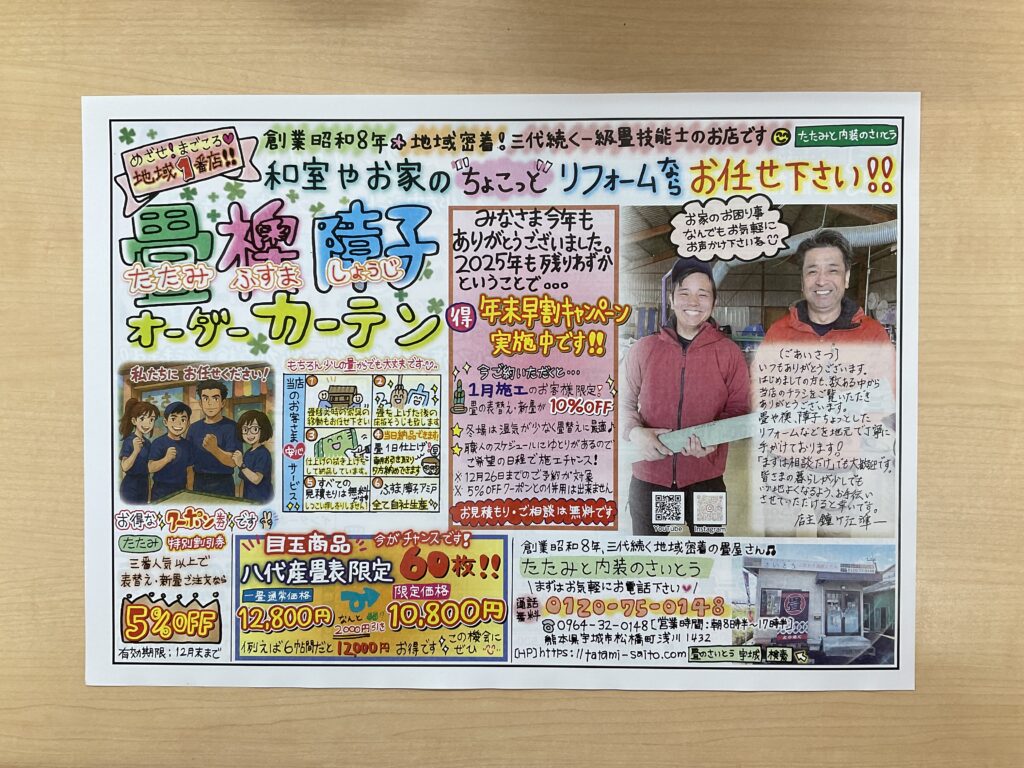 めざせ!まごころ
地域1番店!!
創業昭和8年 地域密着!三代続く一級畳技能士のお店です
たたみと内装のさいとう
和室やお家の"ちょこっと"リフォームならお任せ下さい!!
畳 襖 障子
たたみ ふすま しょうじ
オーダーカーテン
みなさま今年も
ありがとうございました。
2025年も残りわずか
ということで。。。
得 年末早割キャンペーン
実施中です!!
今ご約いただくと…
1月施工のお客様限定!
畳の表替え・新畳が10%OFF
冬場は湿気が少なく畳替えに最適♪
職人のスケジュールにゆとりがあるので
ご希望の日程で施工チャンス!
※12月26日までのご予約が対象
※5%OFFクーポンとの併用は出来ません
お見積もり・ご相談は無料です
お家のお困り事
なんでもお気軽に
お声かけ下さいね
(ごあいさつ)
いつもありがとうございます。
はじめましての方も、数ある中から
当店のチラシをご覧いただき
ありがとうございます。
畳や襖、障子、ちょっとした
リフォームなどを地元で丁寧に
手がけております!
まずは相談だけでも大歓迎です
皆さまの暮らしが少しでも
心地よくなるよう、お手伝い
させていただけると幸いです。
店主
YouTube
Instagram
私たちにお任せください!
もちろん少しの量からでも大丈夫です
当店のお客さま安心サービス
1
畳替え時の家具の
移動もお任せ下さい
2
畳を上げた後の
床掃除もします
3
仕上げの拭き上げをして
納品しています。
4 当日納品できます!
畳1日仕上げ
朝お引き取り
夕方納めできます
5 すべての
見積もりは無料です
しつこい押し売りしません!
6 ふすま、障子、アミ戸
全て自社生産
お得なクーポン券です
たたみ 特別割引券
三番人気以上で
表替え・新畳ご注文なら
5%OFF
有効期限:12月末まで
目玉商品 今がチャンスです!
八代産畳表限定 60枚!!
一畳通常価格
12,800円
なんと
2000円引き
限定価格
10,800円
例えば6帖間だと12,000円お得です この機会にぜひ
創業昭和8年、三代続く地域密着の畳屋さん♫
たたみと内装のさいとう
まずはお気軽にお電話下さい
通話料無料 0120-75-0148
☎0964-32-0148[営業時間:朝8時半〜17時半]
熊本県宇城市松橋町浅川1432
[HP]https://tatami-saito.com 畳のさいとう 宇城 検索